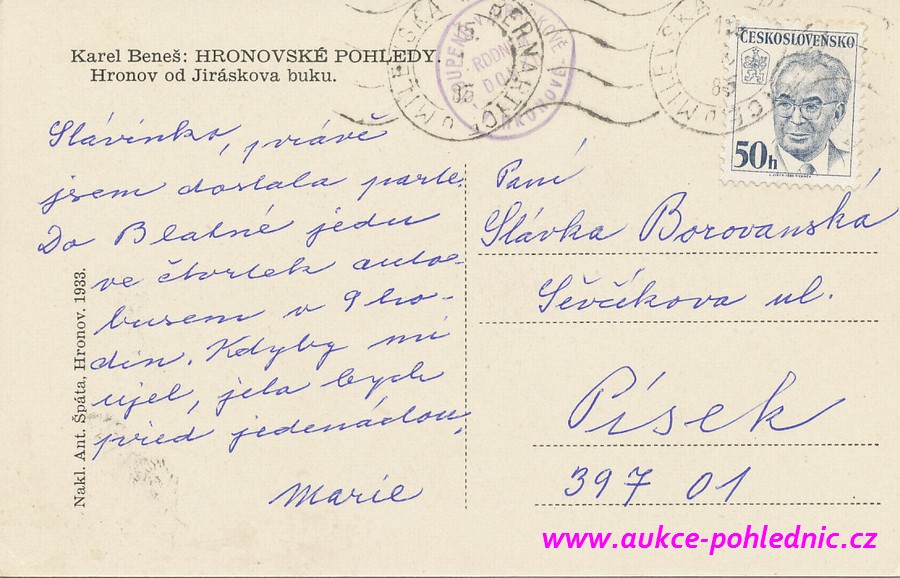 Karel Beneš: HRONOVSKÉ POHLEDY.
Hronov od Jiráskova buku.
ČESKOSLOVENSKO
50h
Slávinko, právě
jsem dostala parte.
Do Blatné jedu
ve čtvrtek auto-
busem v 9 ho-
din. Kdyby mi
ujel, jela bych
před jedenáctou.
Marie
Paní
Slávka Borovanská
Ševčíkova ul.
Písek
397 01
Nakl. Ant. Špáta, Hronov. 1933.
U MILEVSKA
BERNARTICE
85
RODN
www.aukce-pohlednic.cz